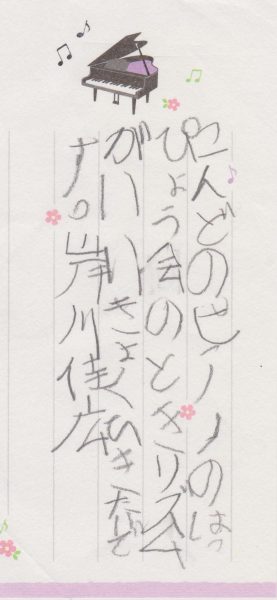 こんどのピアノのはっ
ぴょう会のときリズム
がいいきょくひきたいで
す。岸川佳広